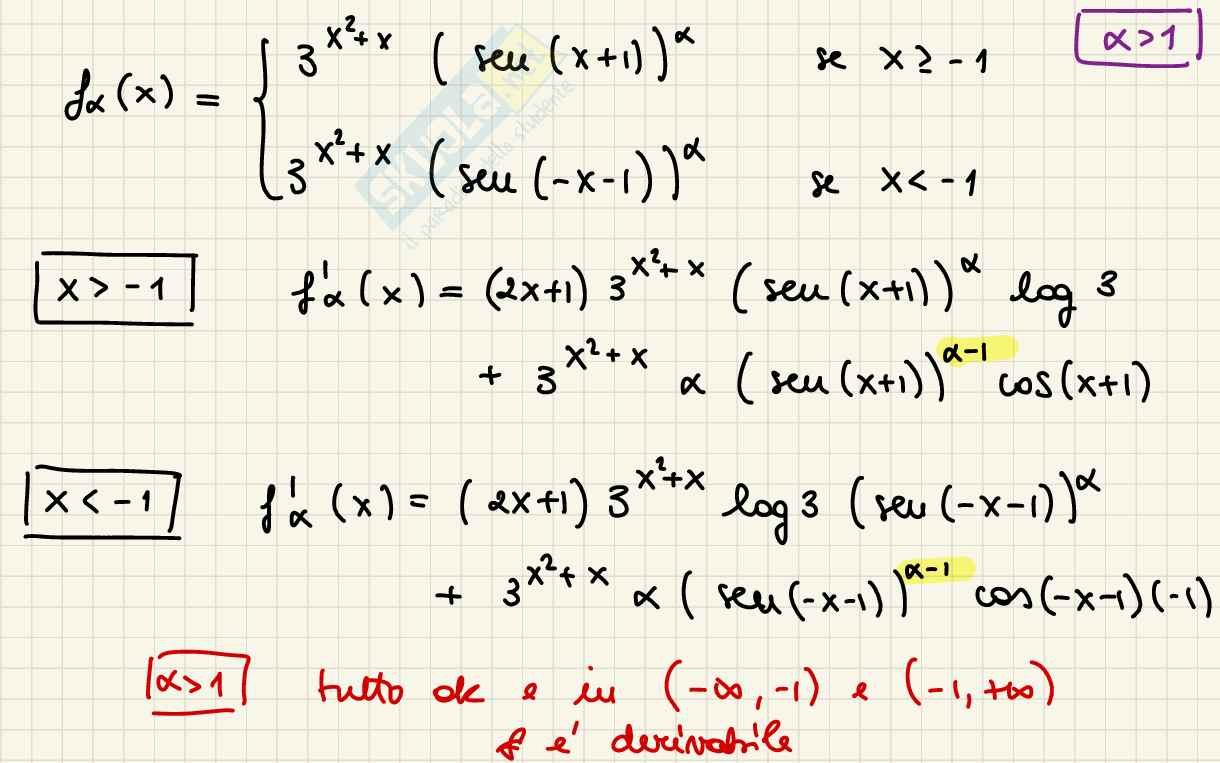 f_α(x) = { 3^{x²+x} (sen(x+1))^α se x ≥ -1
α>1
3^{x²+x} (sen(-x-1))^α se x < -1
SKUOLA.net
x > -1 f'_α(x) = (2x+1) 3^{x²+x} (sen(x+1))^α log 3
+ 3^{x²+x} α (sen(x+1))^{α-1} cos(x+1)
x < -1 f'_α(x) = (2x+1) 3^{x²+x} log 3 (sen(-x-1))^α
+ 3^{x²+x} α (sen(-x-1))^{α-1} cos(-x-1)(-1)
α>1 tutto ok e in (-∞,-1) e (-1,+∞)
f e' derivabile